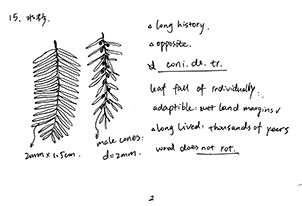 15. 水杉.
△ long history.
△ opposite.
d coni. de. tr.
leaf fall of individually.
adaptible: wet land margins ✓
△ long Lived: thousands of years
wood does not rot.
2mm × 1.5cm.
male cones:
d=2mm.